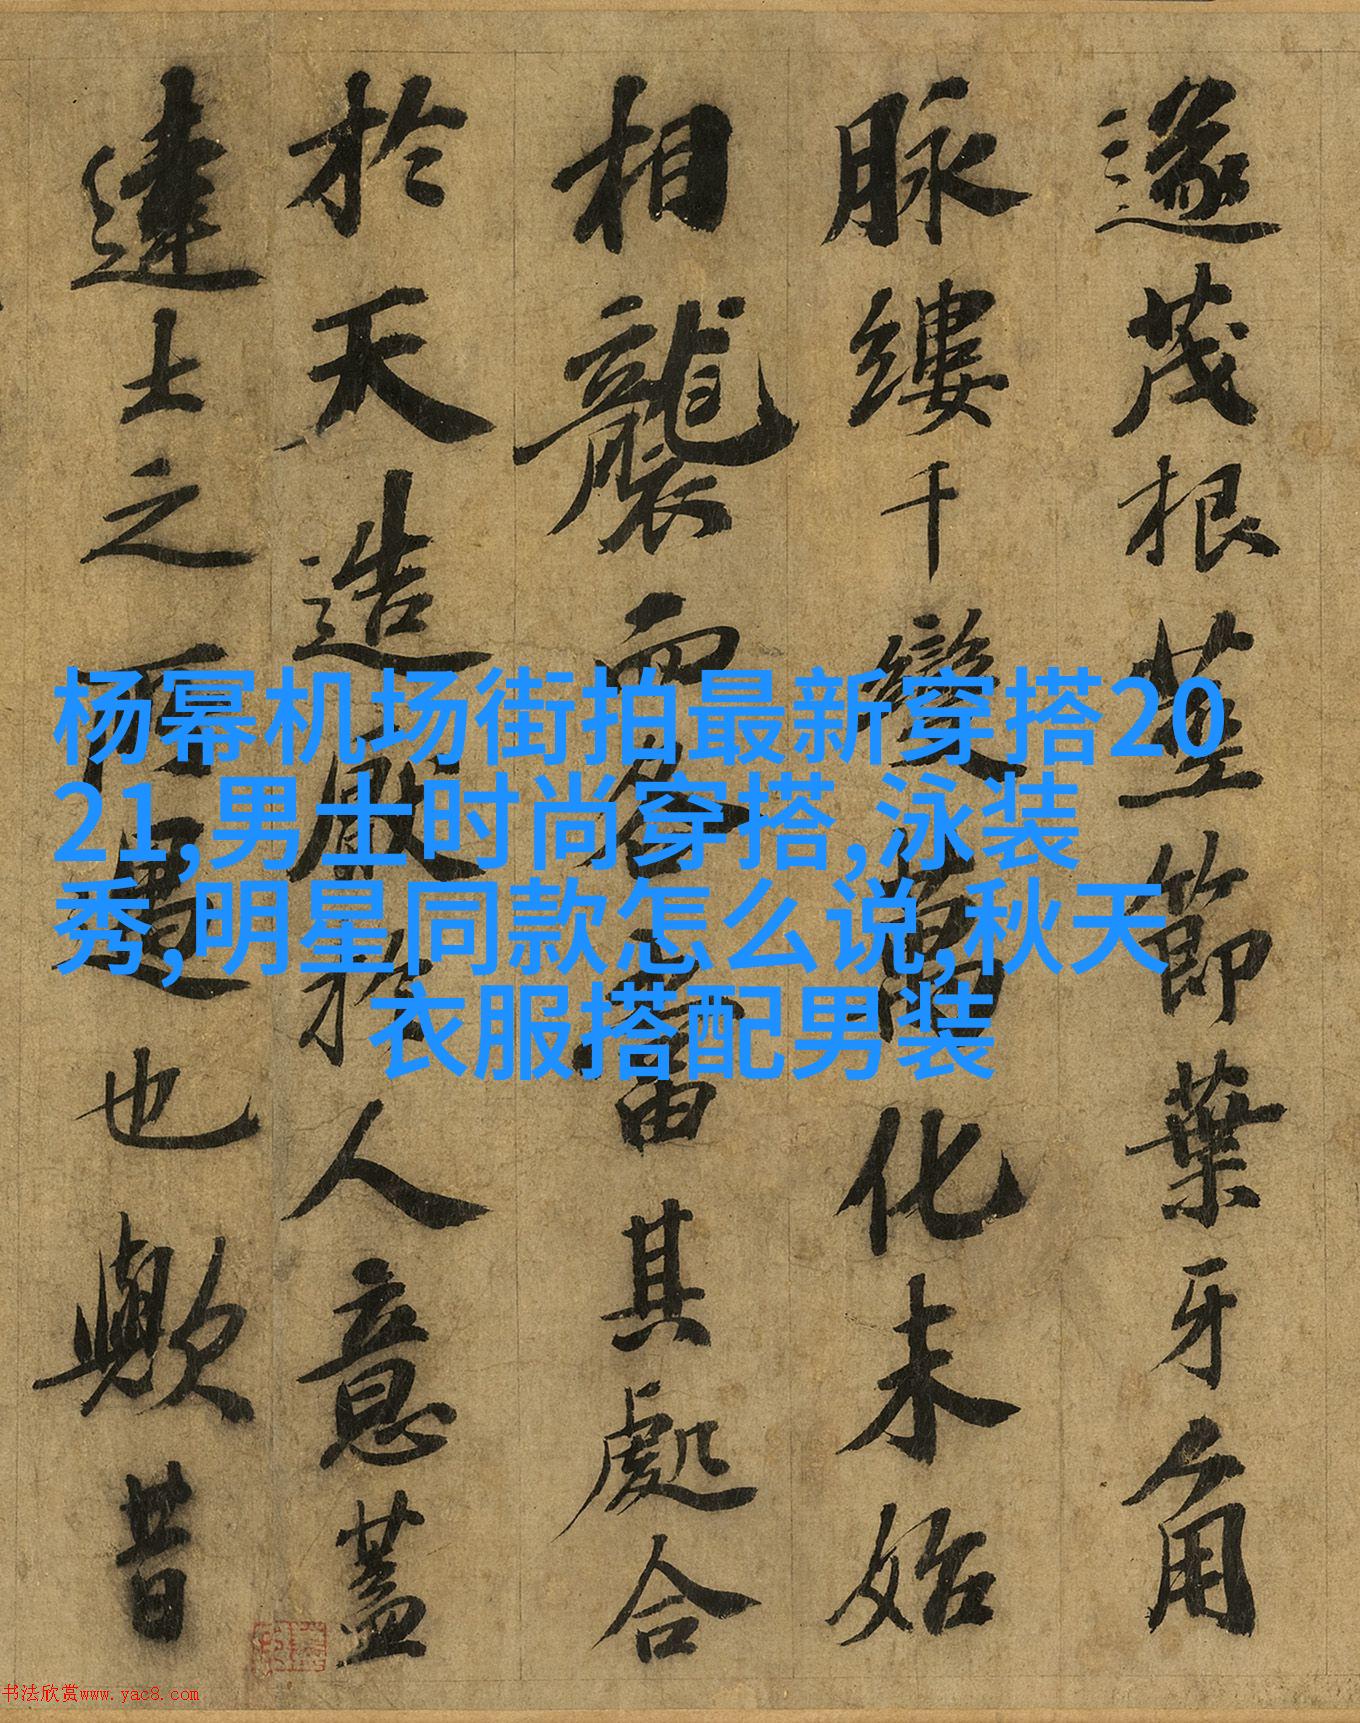 遂茂根莖節葉牙角
脉縷千變萬化未始
相襲而各當其處合
於天造厭於人意蓋
達士之所寓也歟昔
杨幂机场街拍最新穿搭20
21,男士时尚穿搭,泳装
秀,明星同款怎么说,秋天
衣服搭配男装
书法欣赏www.yac8.com